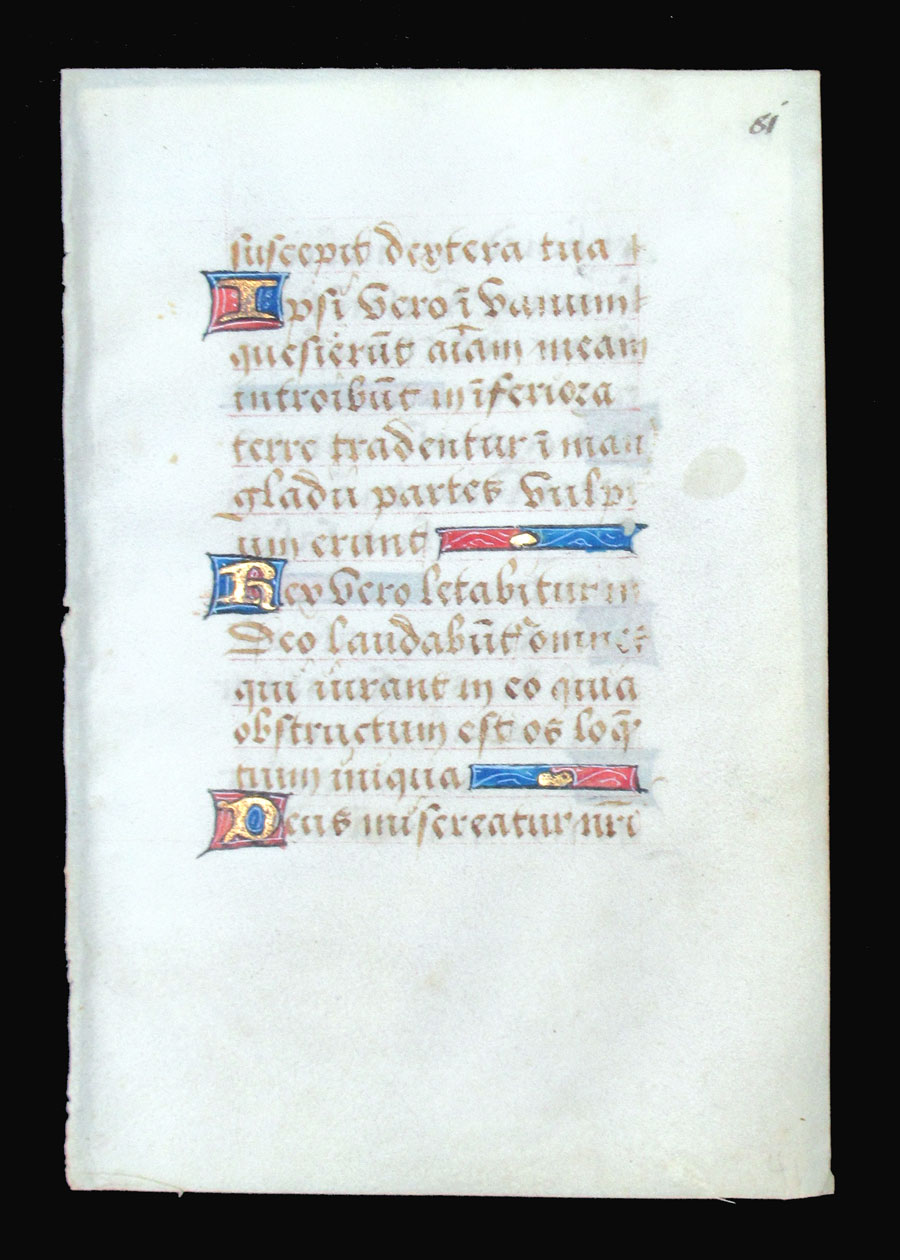 61
suscepit dextera tua
Ipsi vero ī vanum
quesierūt aīam meam
introibūt in īferiora
terre tradentur ī man
gladii partes vulpi
um erunt
Rex vero letabitur in
Deo laudabūt omnes
qui iurant in eo quia
obstructum est os loq̄
tium iniqua
Deus misereatur nr̄i